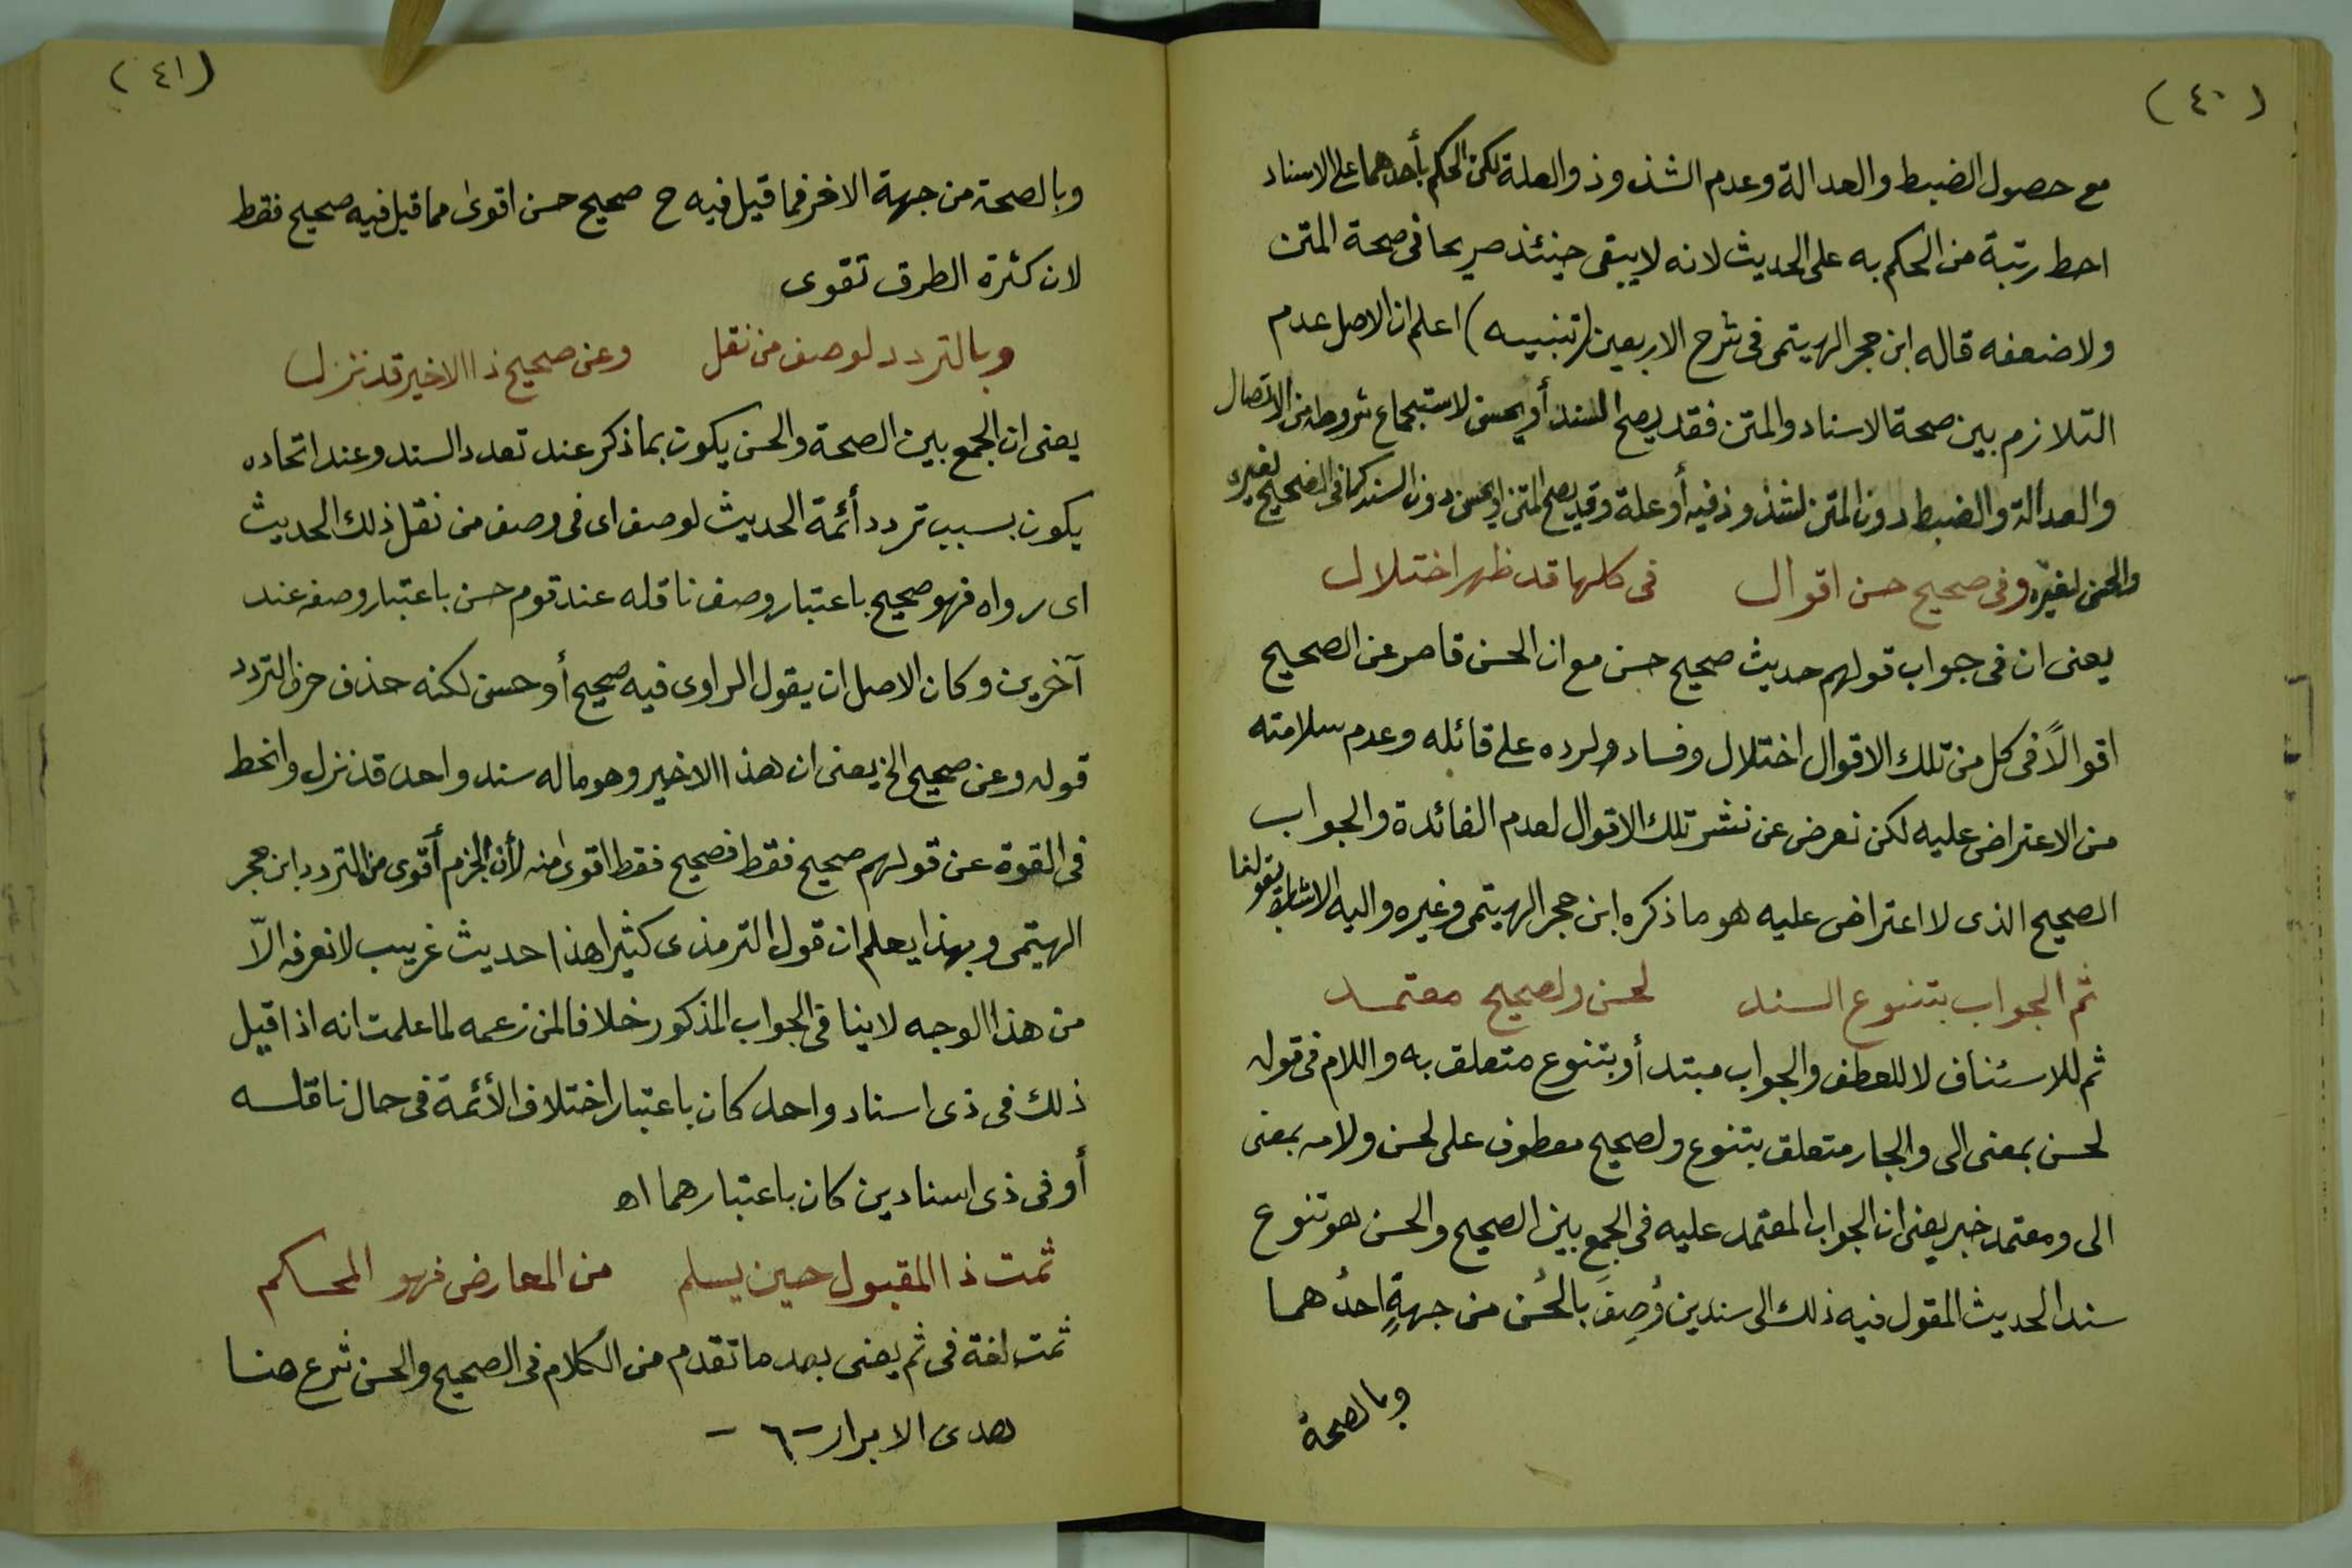 (٤٠)
مع حصول الضبط والعدالة وعدم الشذوذ والعلة لكن الحكم بأحدهما على الاسناد
احط رتبة من الحكم به على الحديث لانه لا يبقى حينئذ صريحا فى صحة المتن
ولا ضعفه قاله ابن حجر الهيتمى فى شرح الاربعين (تنبيه) اعلم ان الاصل عدم
التلازم بين صحة الاسناد والمتن فقد يصح السند أو يحسن لاستجماع شروطه من الاتصال
والعدالة والضبط دون المتن لشذوذ فيه أو علة وقد يصح المتن او يحسن دون السند كما فى الصحيح لغيره
والحسن لغيره وفى صحيح حسن اقوال فى كلها قد ظهر اختلال
يعنى ان فى جواب قولهم حديث صحيح حسن مع ان الحسن قاصر عن الصحيح
اقوالاً فى كل من تلك الاقوال اختلال وفساد ولرده على قائله وعدم سلامته
من الاعتراض عليه لكن نعرض عن نشر تلك الاقوال لعدم الفائدة والجواب
الصحيح الذى لا اعتراض عليه هو ما ذكره ابن حجر الهيتمى وغيره واليه الاشارة بقولنا
ثم الجواب بتنوع السند لحسن ولصحيح معتمد
ثم للاستئناف لا للعطف والجواب مبتدأ وبتنوع متعلق به واللام فى قوله
لحسن بمعنى الى والجار متعلق بتنوع ولصحيح معطوف على لحسن ولامه بمعنى
الى ومعتمد خبر يعنى ان الجواب المعتمد عليه فى الجمع بين الصحيح والحسن هو تنوع
سند الحديث المقول فيه ذلك الى سندين وُصِفَ بالحُسْن من جهةٍ احدُهما
وبالصحة
(٤١)
وبالصحة من جهة الاخر فما قيل فيه ح صحيح حسن اقوى مما قيل فيه صحيح فقط
لان كثرة الطرق تقوى
وبالتردد لوصف من نقل وعن صحيح ذا الاخير قد نزل
يعنى ان الجمع بين الصحة والحسن يكون بما ذكر عند تعدد السند وعند اتحاده
يكون بسبب تردد أئمة الحديث لوصف اى فى وصف من نقل ذلك الحديث
اى رواه فهو صحيح باعتبار وصف ناقله عند قوم حسن باعتبار وصفه عند
آخرين وكان الاصل ان يقول الراوى فيه صحيح أو حسن لكنه حذف حرف التردد
قوله وعن صحيح الخ يعنى ان هذا الاخير وهو ما له سند واحد قد نزل وانحط
فى القوة عن قولهم صحيح فقط فصحيح فقط اقوى منه لأن الجزم أقوى من التردد ابن حجر
الهيتمى وبهذا يعلم ان قول الترمذى كثيرا هذا حديث غريب لا نعرفه الاّ
من هذا الوجه لا ينافى الجواب المذكور خلافا لمن زعمه لما علمت انه اذا قيل
ذلك فى ذى اسناد واحد كان باعتبار اختلاف الأئمة فى حال ناقله
أو فى ذى اسنادين كان باعتبارهما اه
ثمت ذا المقبول حين يسلم من المعارض فهو المحاكم
ثمت لغة فى ثم يعنى بعد ما تقدم من الكلام فى الصحيح والحسن شرع هنا
هدى الابرار -٦-